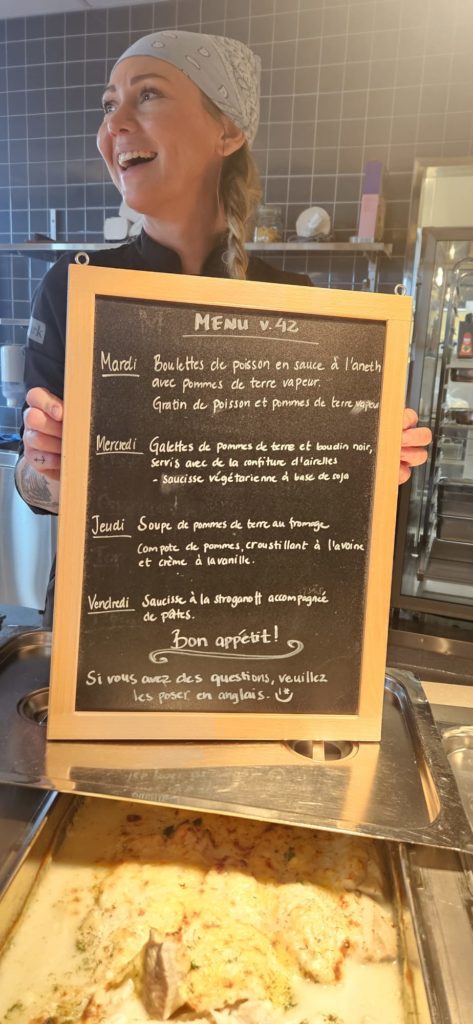 MENU v.42
Mardi Boulettes de poisson en sauce à l'aneth
avec pommes de terre vapeur.
Gratin de poisson et pommes de terre vapeur
Mercredi Galettes de pommes de terre et boudin noir,
servis avec de la confiture d'airelles
- saucisse végétarienne à base de soja
Jeudi Soupe de pommes de terre au fromage
Compote de pommes, croustillant à l'avoine
et crème à la vanille.
Vendredi Saucisse à la stroganoff accompagnée
de pâtes.
Bon appétit!
Si vous avez des questions, veuillez
les poser en anglais.